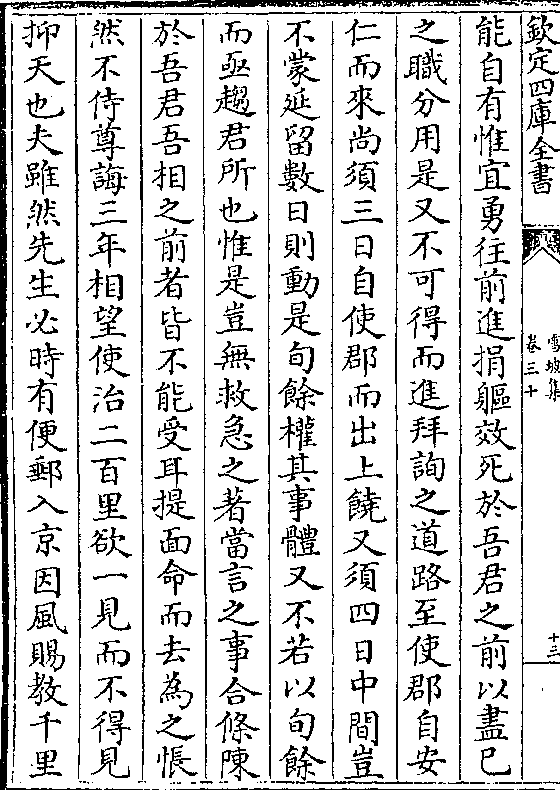 欽定四庫全書
雪坡集
卷三十
十三
能自有惟宜勇往前進捐軀效死於吾君之前以盡已
之職分用是又不可得而進拜詢之道路至使郡自安
仁而來尚須三日自使郡而出上饒又須四日中間豈
不蒙延留數日則動是旬餘權其事體又不若以旬餘
而亟趨君所也惟是豈無救急之著當言之事合條陳
於吾君吾相之前者皆不能受耳提面命而去為之悵
然不侍尊誨三年相望使治二百里欲一見而不得見
抑天也夫雖然先生必時有便郵入京因風賜教千里